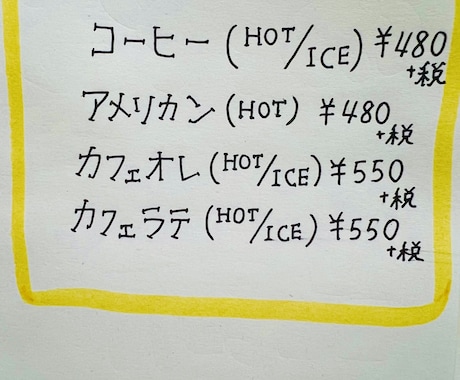 コーヒー(HOT/ICE)¥480
+税
アメリカン(HOT) ¥480
+税
カフェオレ(HOT/ICE)¥550
+税
カフェラテ(HOT/ICE)¥550
+税